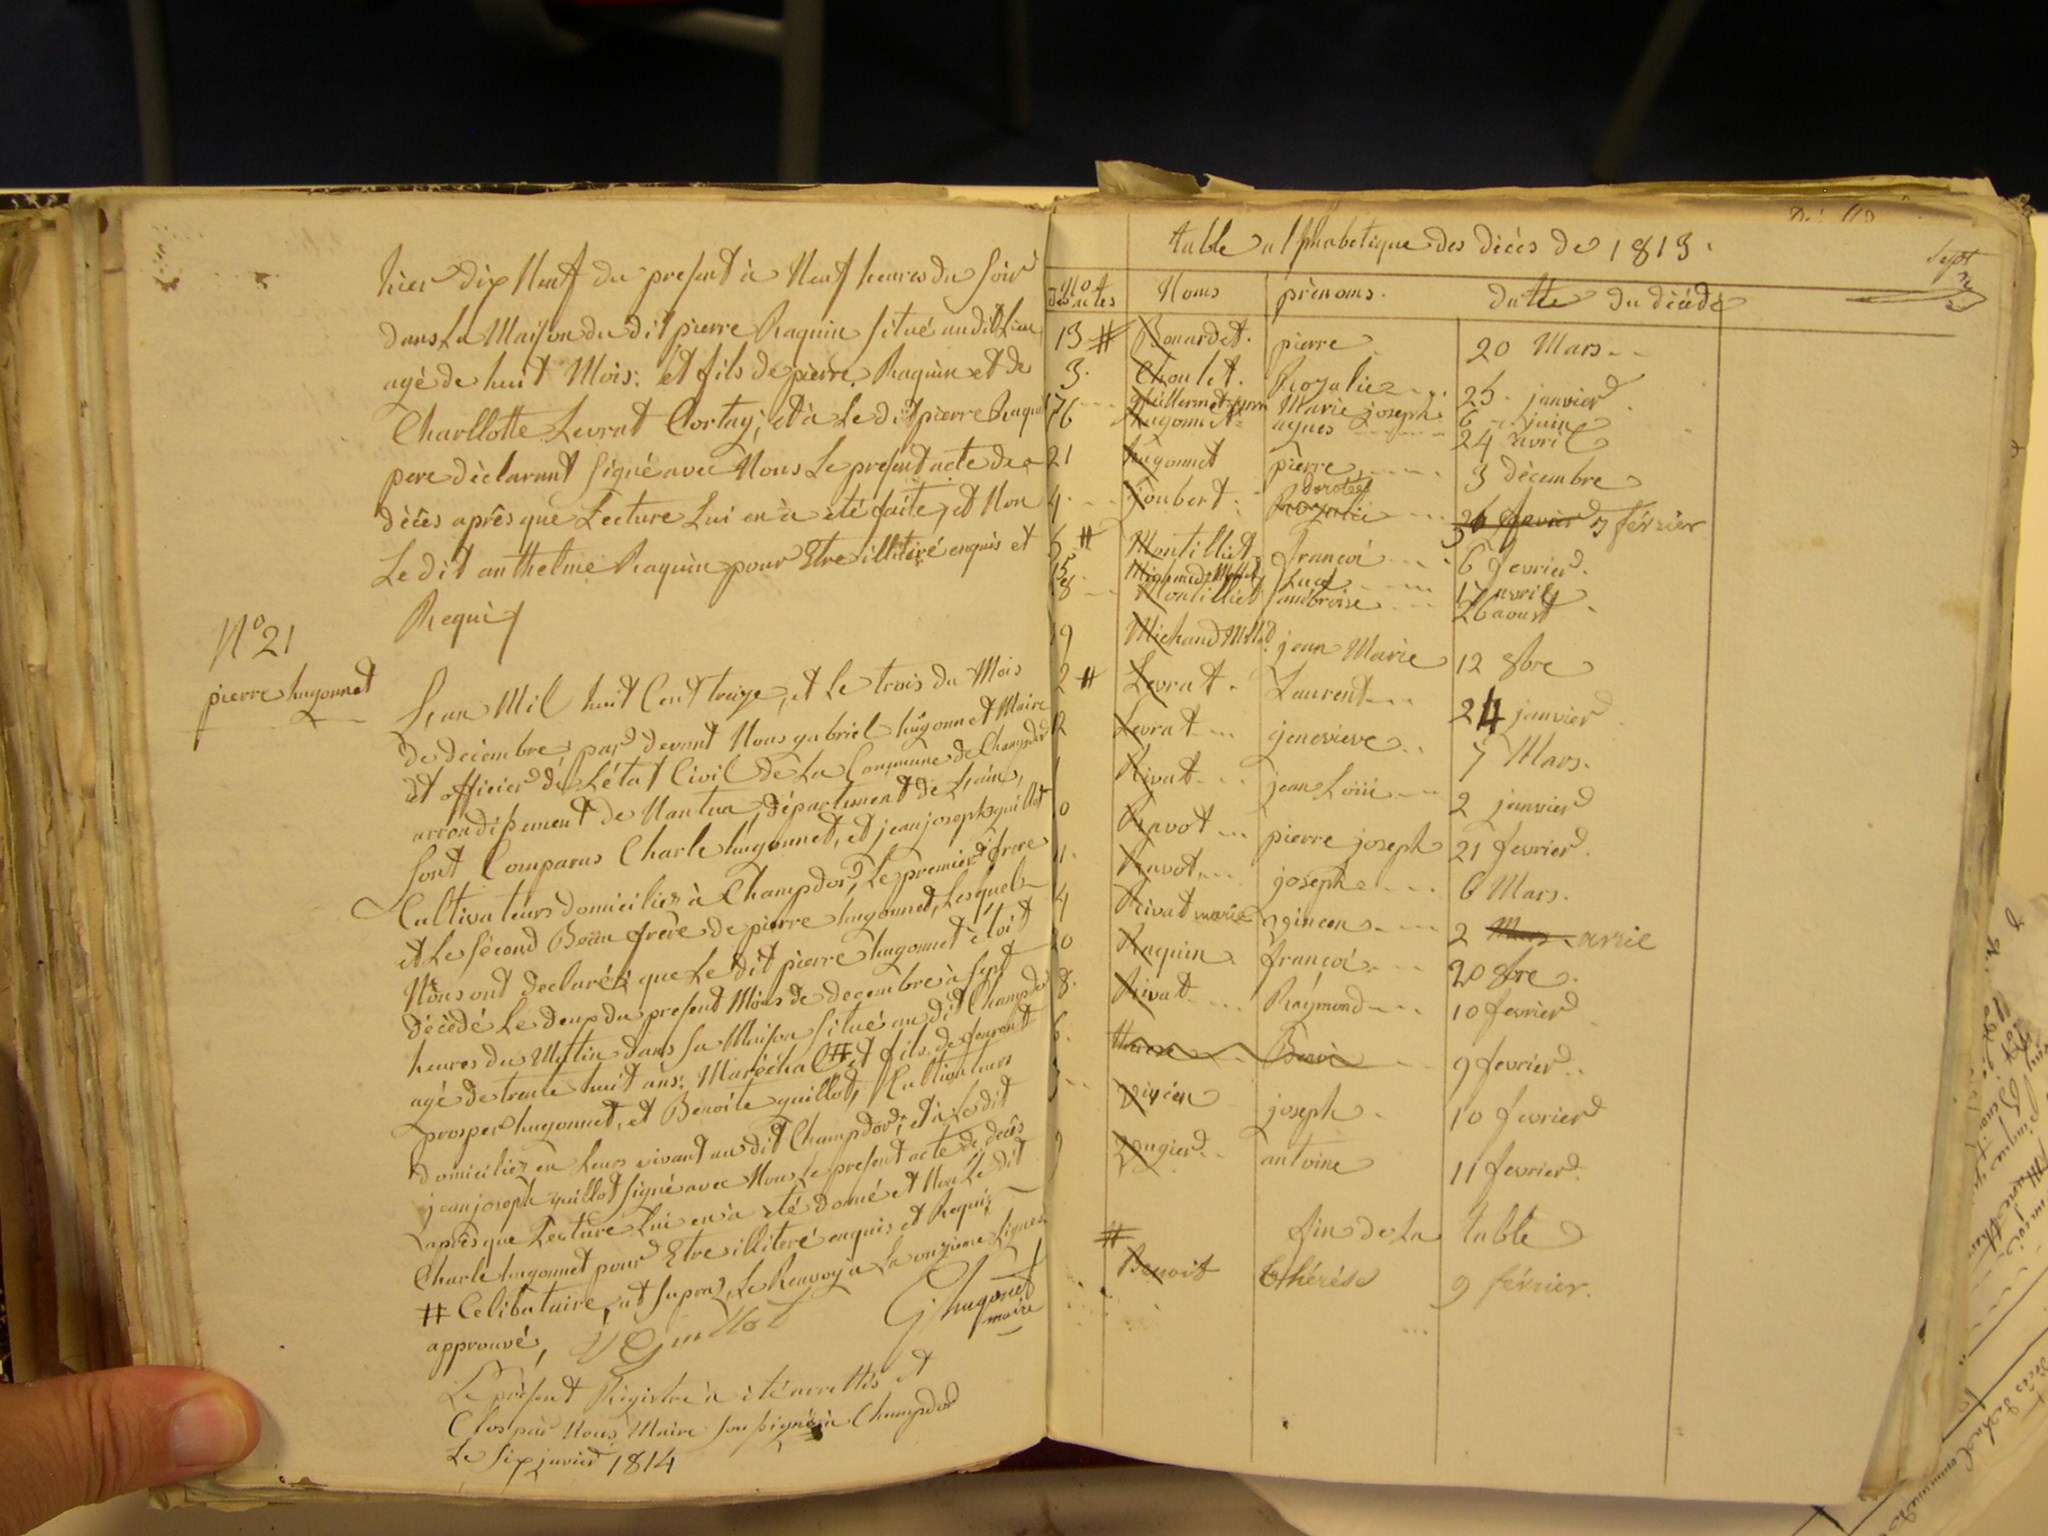 hier dix Neuf du present à Neuf heures du Soir
dans La Maison du dit pierre Raquin situé au dit Lieu
agé de huit Mois: et fils de pierre Raquin et de
Charllotte Levrat Cortay; et à Le dit pierre Raquin
pere déclarant signé avec Nous Le present acte de
décès après que Lecture Lui en à eté faite, et Non
Le dit anthelme Raquin pour Etre illitiré enquis et
Requis
N° 21
pierre hugonnet
L'an Mil huit Cent treize, et Le trois du Mois
de decembre, par devant Nous gabriel hugonnet Maire
et officier de L'état Civil de La Commune de Champdor
arrondissement de Nantua, département de L'ain,
sont Comparus Charle hugonnet, et jean joseph guillot
Cultivateurs domiciliez à Champdor, Le premier frere
et Le second Beau frere de pierre hugonnet, Lesquels
Nous ont declaréz que Le dit pierre hugonnet étoit
décédé Le deux du present Mois de decembre à sept
heures du Matin dans sa Maison situé au dit Champdor
agé de trente huit ans: Maréchal # et fils de feu
prosper hugonnet, et Benoite guillot, Cultivateurs
domiciliez en Leurs vivant au dit Champdor; et à Le dit
jean joseph guillot signé avec Nous Le present acte de decès
après que Lecture Lui en à eté donné et Non Le dit
Charle hugonnet pour Etre illiteré enquis et Requis
# Celibataire, ut supra, Le Renvoy à La onzieme Lignes
approuvé, JJ Guillot G hugonnet
maire
Le présent Régistre à été arrettés et
Clos par Nous Maire sousigné à Champdor
Le six janvier 1814
table alphabetique des décès de 1813.
Sept
N° des actes Noms prénoms. datte du décéde
13 # Bonardet. pierre 20 Mars
3. Choulet. Rozalie 25. janvier
17 Guillermet Marie joseph 6 juin
16 hugonnet agnes 24 avril
21 hugonnet pierre 3 décembre
4. Joubert. Rozalie dorotée 26 janvier 3 février
6 # Montilliet francoi 6 fevrier.
15 Michaud Mollet Luc 17 avril
18 Montilliet ambroise 26 aoust
19 Michaud Moll. jean Marie 12 8bre
2 # Levrat. Laurent 24 janvier
12 Levrat genevieve 7 Mars.
1 Rivat jean Loüi 2 janvier
10 Ravot pierre joseph 21 fevrier.
11. Ravot joseph 6 Mars.
14 Rivat marie 2 Mars avril
20 Raquin. francoi 20 8bre.
8. Rivat Raymond 10 fevrier
6. 9 fevrier
Vincent joseph 10 fevrier
9 antoine 11 fevrier.
fin de La table
# Benoit thérése 9 février.